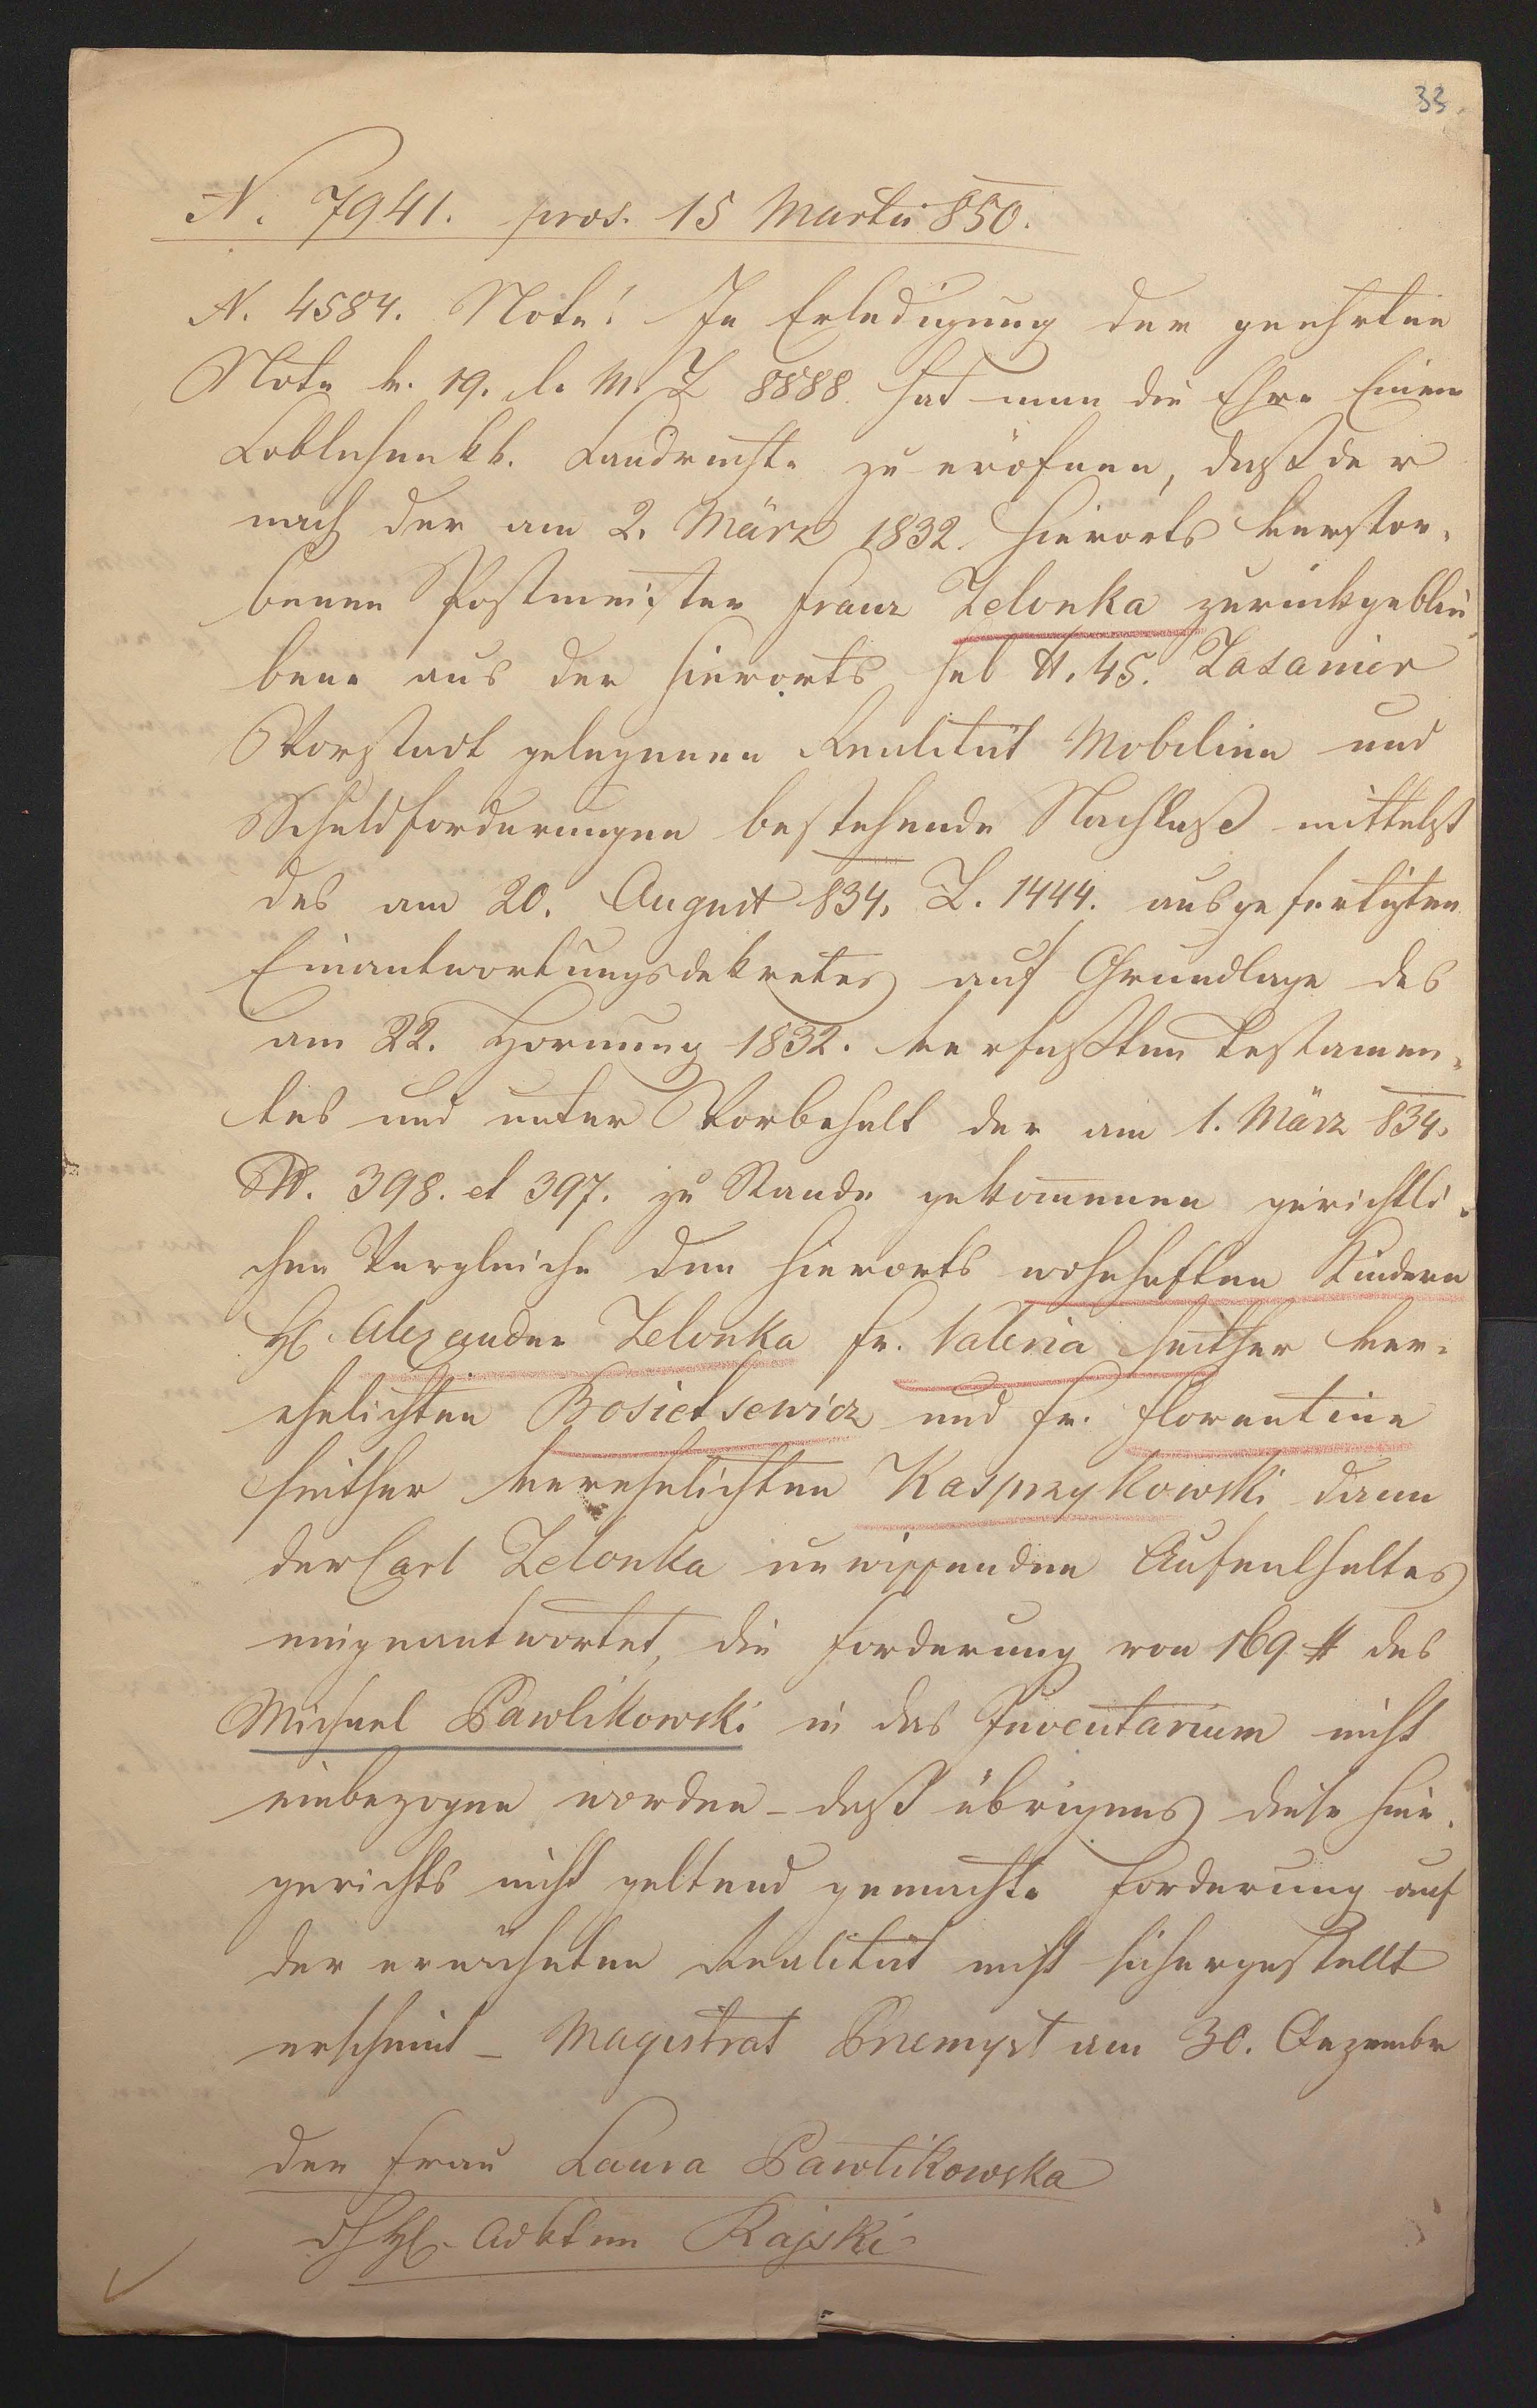 33.
N. 7941. pros. 15 Martii 850.
N. 4584. Note! In Erledigung der geehrten
Note v. 19. l. M. Z 8888. hat man die Ehre Einem
Loblichen kk. Landrechte zu eröfnen, daß der
nach der am 2. März 1832. hierorts verstor„
benen Postmeister Franz Zelonka zurückgeblie„
bene aus der hierorts sub N. 45. Zasanier
Vorstadt gelegenen Realität Mobilien und
Schuldforderungen bestehende Nachlaß mittelst
des am 20. August 834. Z. 1444. ausgefertigten
Einantwortungsdekretes auf Grundlage des
am 22. Hornung 1832. verfaßten Testamen„
tes und unter Vorbehalt der am 1. März 834.
N. 398. et 397. zu Stande gekommenen gerichtli„
chen Vergleiche den hierorts wohnhaften Kindern
H. Alexander Zelonka Fr. Valeria seither ver„
ehelichten Bosietsewicz und Fr. Florentine
seither verehelichten Kasprzykowski dann
der Carl Zelonka unwissenden Aufenthaltes
eingeantwortet, die Forderung von 169 # des
Michael Pawlikowski in das Inventarium nicht
einbezogen worden – daß übrigens diese hier„
gerichts nicht geltend gemachte Forderung auf
der erwähnten Realität nicht sichergestellt
erscheint – Magistrat Przemysl am 30. Dezember
der Frau Laura Pawlikowska
H. Advkten Rajski